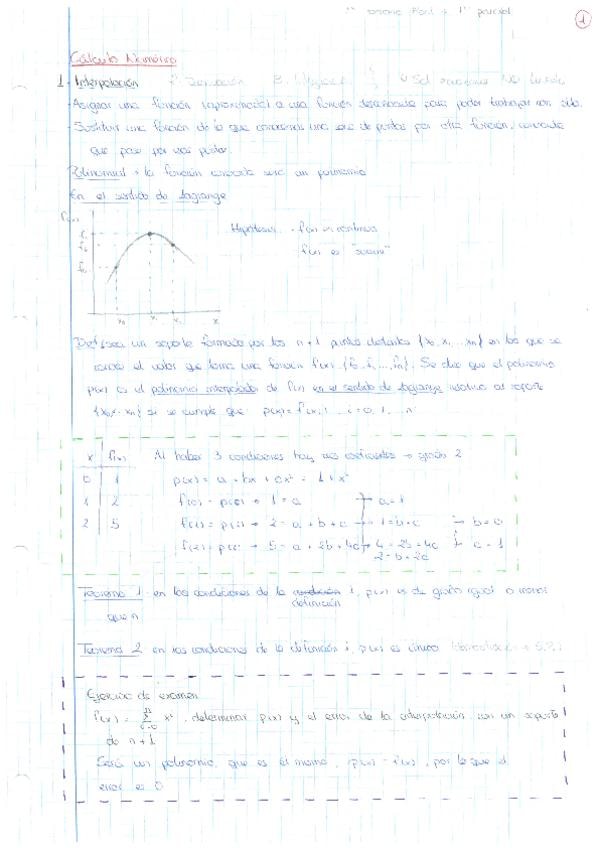 1
Cálculo Numérico
1- Interpolación
- Asignar una función (aproximada) a una función desconocida para poder trabajar con ella.
- Sustituir una función de la que conocemos una serie de puntos por otra función, conocida
que pase por esos puntos.
Polinomial → la función conocida será un polinomio
En el sentido de Lagrange
Hipótesis: - f(x) es continua
f(x) es "suave"
x₀ x₁ x₂ x
Def: sea un soporte formado por los n+1 puntos distintos {x₀, x₁ ... xₙ} en los que se
conoce el valor que toma una función f(x) {f₀, f₁, ..., fₙ}. Se dice que el polinomio
p(x) es el polinomio interpolador de f(x) en el sentido de Lagrange relativo al soporte
{x₀, ... xₙ} si se cumple que p(xᵢ) = f(xᵢ) i = 0, 1, ... n
x f(x) Al haber 3 condiciones hay tres coeficientes → grado 2
0 1 p(x) = a + bx + cx² = 1 + x²
1 2 f(0) = p(0) → 1 = a a = 1
2 5 f(1) = p(1) → 2 = a + b + c → 1 = b + c → b = 0
f(2) = p(2) → 5 = a + 2b + 4c → 4 = 2b + 4c c = 1
Teorema 1 en las condiciones de la definición 1, p(x) es de grado igual o menor
que n
Teorema 2 en las condiciones de la definición 1, p(x) es único
Ejercicio de examen
determinar p(x) y el error de la interpolación, con un soporte
de n+1
Será un polinomio, que es el mismo, p(x) = f(x), por lo que el
error es 0